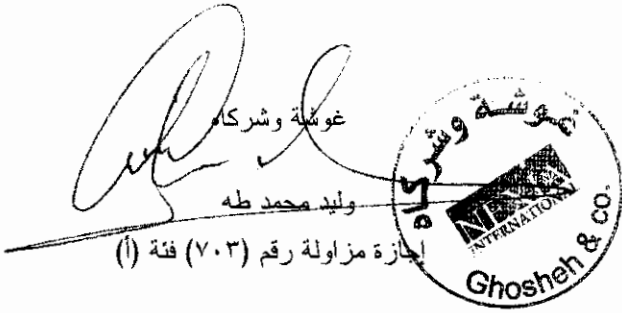 غوشة وشركاه
وليد محمد طه
إجازة مزاولة رقم (٧٠٣) فئة (أ)
غوشة وشركاه
INTERNATIONAL
Ghosheh & Co.